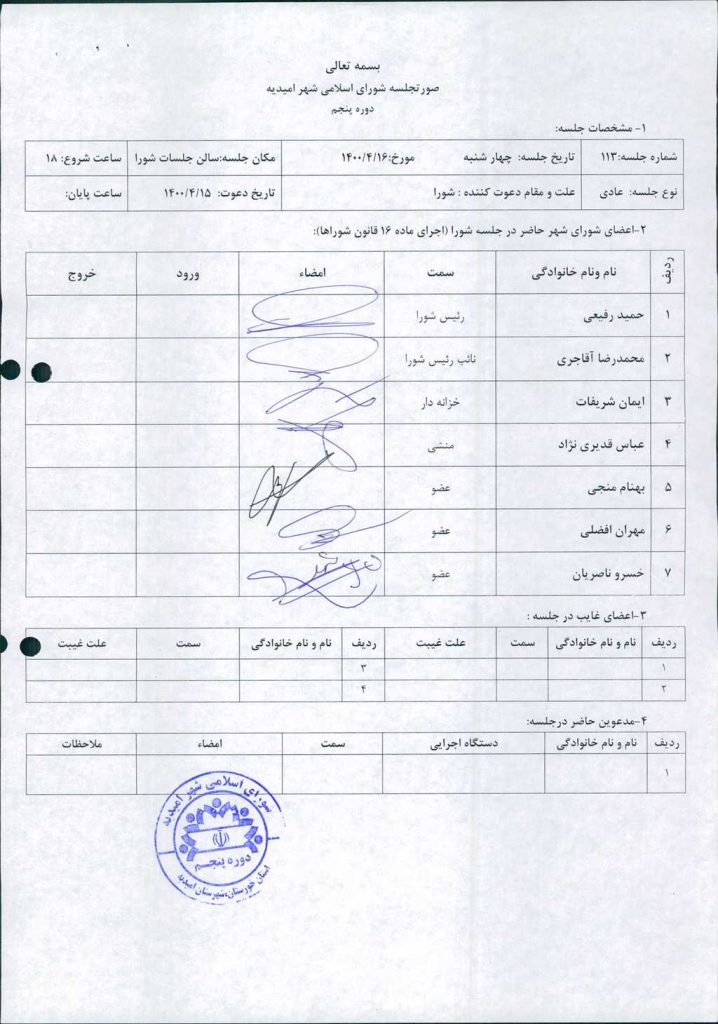 بسمه تعالی
صورتجلسه شورای اسلامی شهر امیدیه
دوره پنجم
۱- مشخصات جلسه:
شماره جلسه:۱۱۳ تاریخ جلسه: چهار شنبه مورخ:۱۴۰۰/۴/۱۶ مکان جلسه:سالن جلسات شورا ساعت شروع: ۱۸
نوع جلسه: عادی علت و مقام دعوت کننده : شورا تاریخ دعوت: ۱۴۰۰/۴/۱۵ ساعت پایان:
۲-اعضای شورای شهر حاضر در جلسه شورا (اجرای ماده ۱۶ قانون شوراها):
ردیف نام ونام خانوادگی سمت امضاء ورود خروج
۱ حمید رفیعی رئیس شورا
۲ محمدرضا آقاجری نائب رئیس شورا
۳ ایمان شریفات خزانه دار
۴ عباس قدیری نژاد منشی
۵ بهنام منجی عضو
۶ مهران افضلی عضو
۷ خسرو ناصریان عضو
۳-اعضای غایب در جلسه :
ردیف نام و نام خانوادگی سمت علت غیبت ردیف نام و نام خانوادگی سمت علت غیبت
۱ ۳
۲ ۴
۴-مدعوین حاضر درجلسه:
ردیف نام و نام خانوادگی دستگاه اجرایی سمت امضاء ملاحظات
۱
شورای اسلامی شهر امیدیه
دوره پنجم
استان خوزستان،شهرستان امیدیه